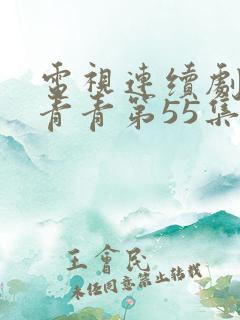 電視連續劇
青青第55集
王會民
未经同意禁止转载